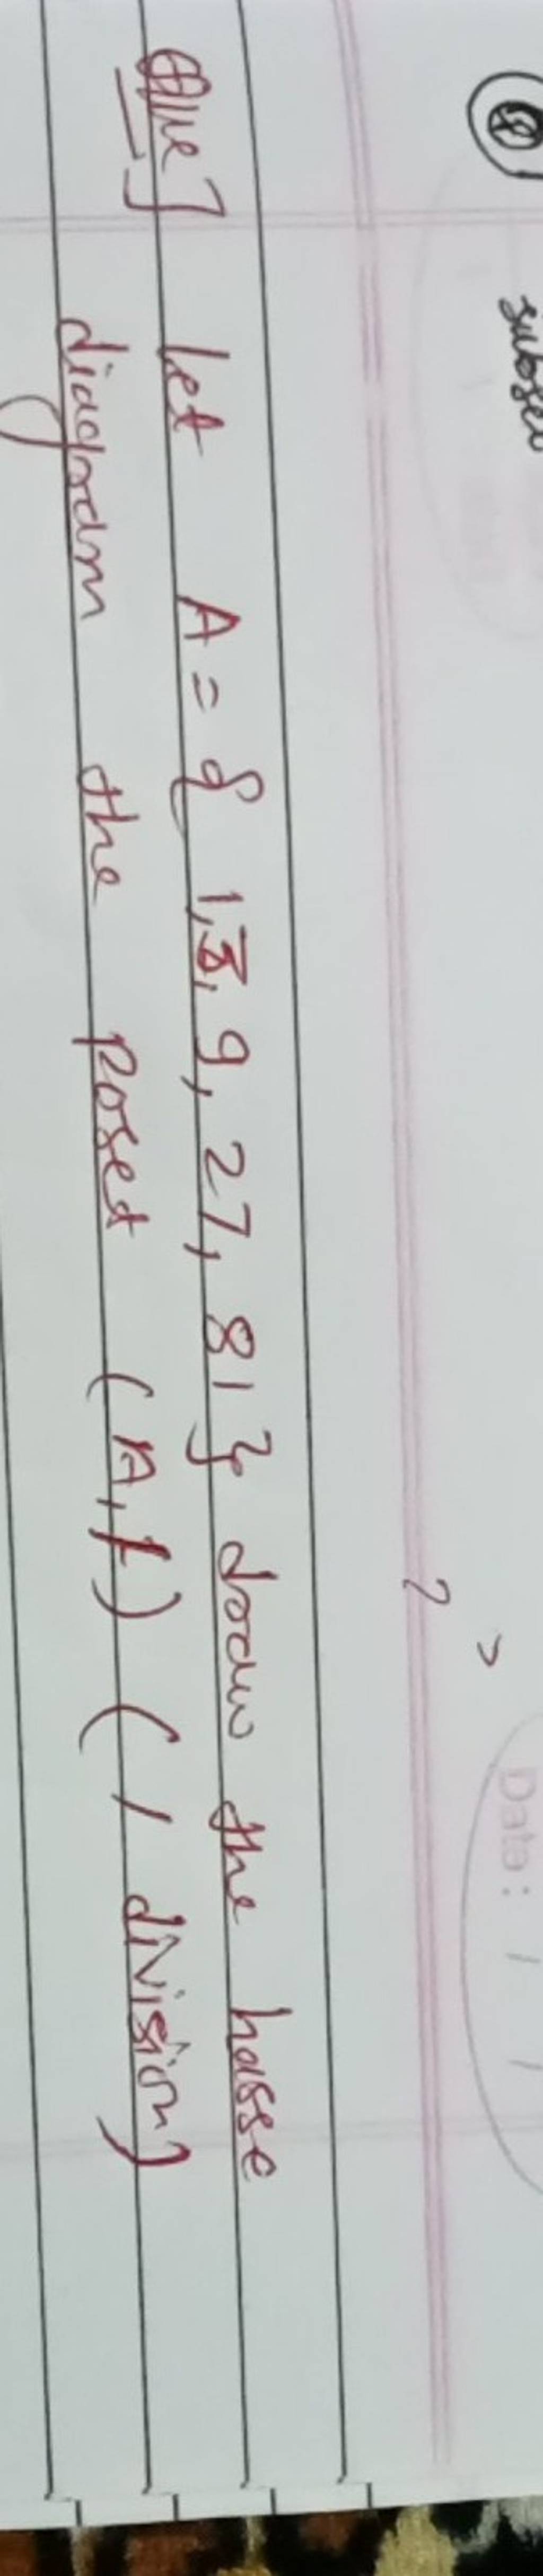 subset
Date: / /
Que] let A = { 1, 3, 9, 27, 81 } draw the hasse
diagram the poset (A, /) ( / division)